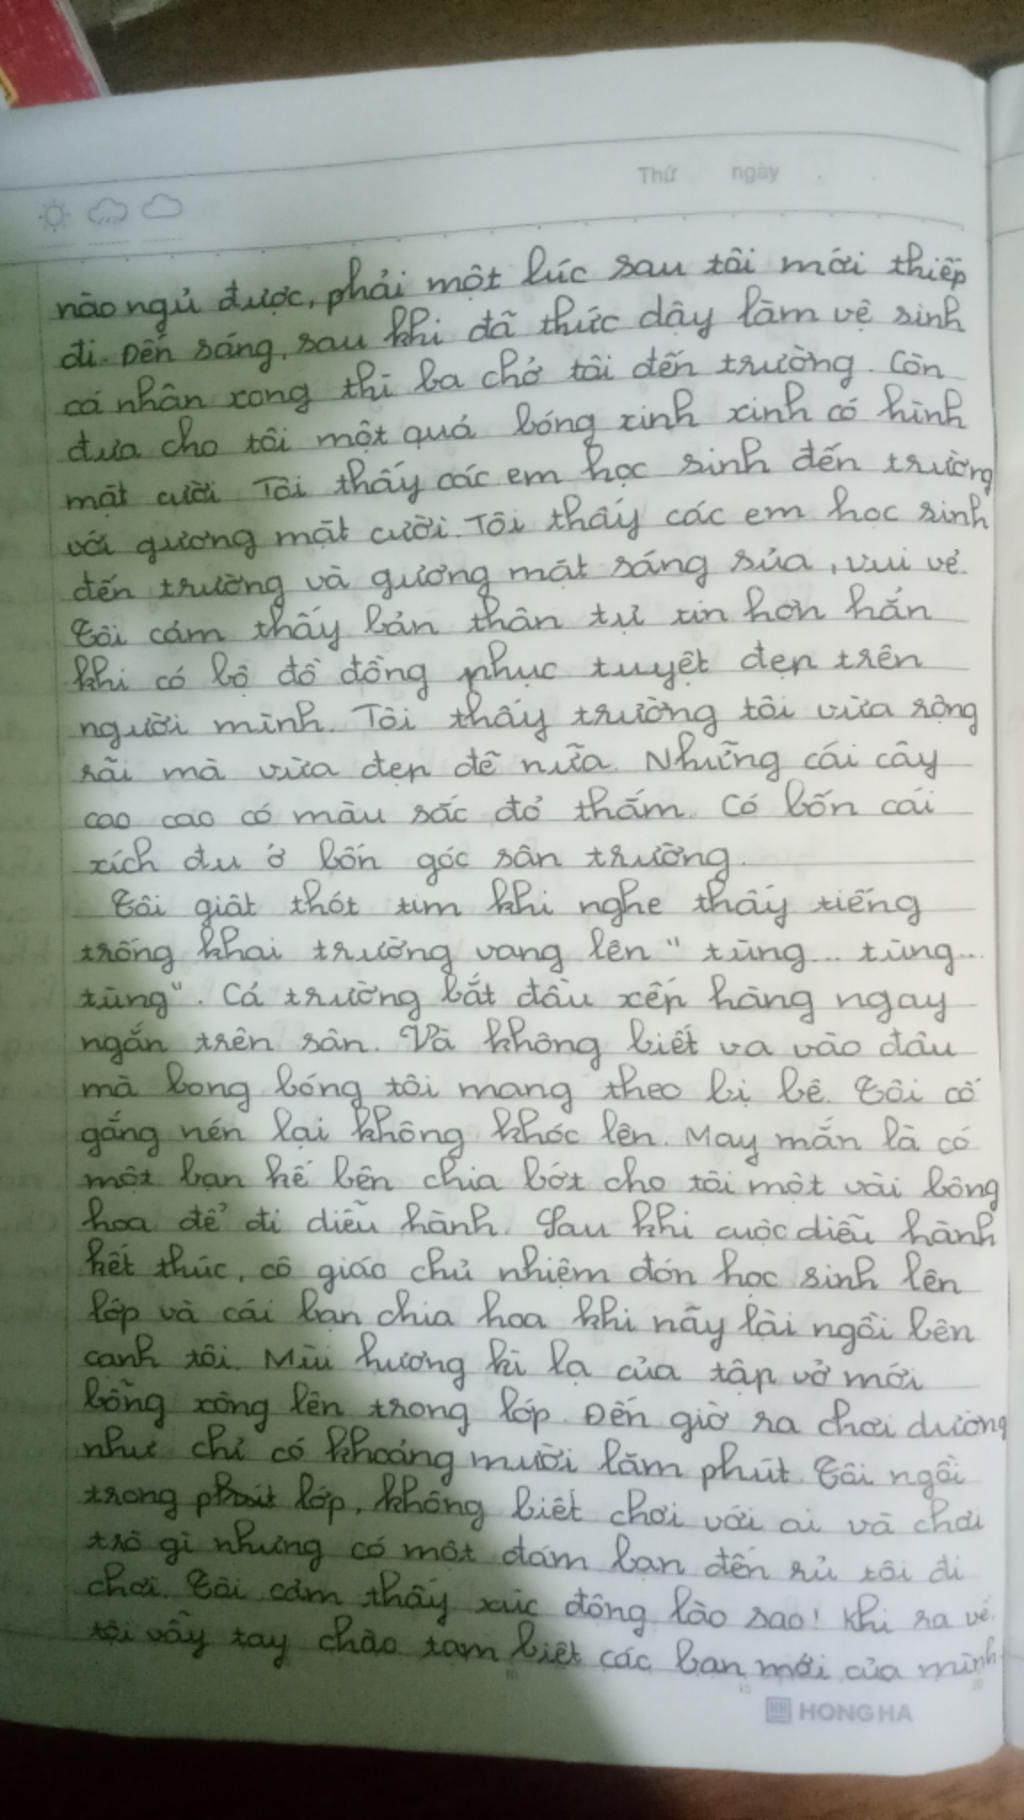 Thứ ngày
nào ngủ được, phải một lúc sau tôi mới thiếp
đi. Đến sáng, sau khi đã thức dậy làm vệ sinh
cá nhân xong thì ba chở tôi đến trường. Còn
đưa cho tôi một quả bóng xinh xinh có hình
mặt cười Tôi thấy các em học sinh đến trường
với gương mặt cười. Tôi thấy các em học sinh
đến trường và gương mặt sáng sủa, vui vẻ.
Tôi cảm thấy bản thân tự tin hơn hẳn
khi có bộ đồ đồng phục tuyệt đẹp trên
người mình. Tôi thấy trường tôi vừa rộng
rãi mà vừa đẹp đẽ nữa. Những cái cây
cao cao có màu sắc đỏ thắm. Có bốn cái
xích đu ở bốn góc sân trường.
Tôi giật thót tim khi nghe thấy tiếng
trống khai trường vang lên " tùng... tùng...
tùng". Cả trường bắt đầu xếp hàng ngay
ngắn trên sân. Và không biết va vào đâu
mà bong bóng tôi mang theo bị bể. Tôi cố
gắng nén lại không khóc lên. May mắn là có
một bạn kế bên chia bớt cho tôi một vài bông
hoa để đi diễu hành. Sau khi cuộc diễu hành
kết thúc, cô giáo chủ nhiệm đón học sinh lên
lớp và cái bạn chia hoa khi nãy lại ngồi bên
cạnh tôi. Mùi hương kì lạ của tập vở mới
bỗng xông lên trong lớp. Đến giờ ra chơi dường
như chỉ có khoảng mười lăm phút. Tôi ngồi
trong lớp, không biết chơi với ai và chơi
trò gì nhưng có một đám bạn đến rủ tôi đi
chơi. Tôi cảm thấy xúc động lào sao! Khi ra về.
tôi vẫy tay chào tạm biệt các bạn mới của mình.
HONG HA